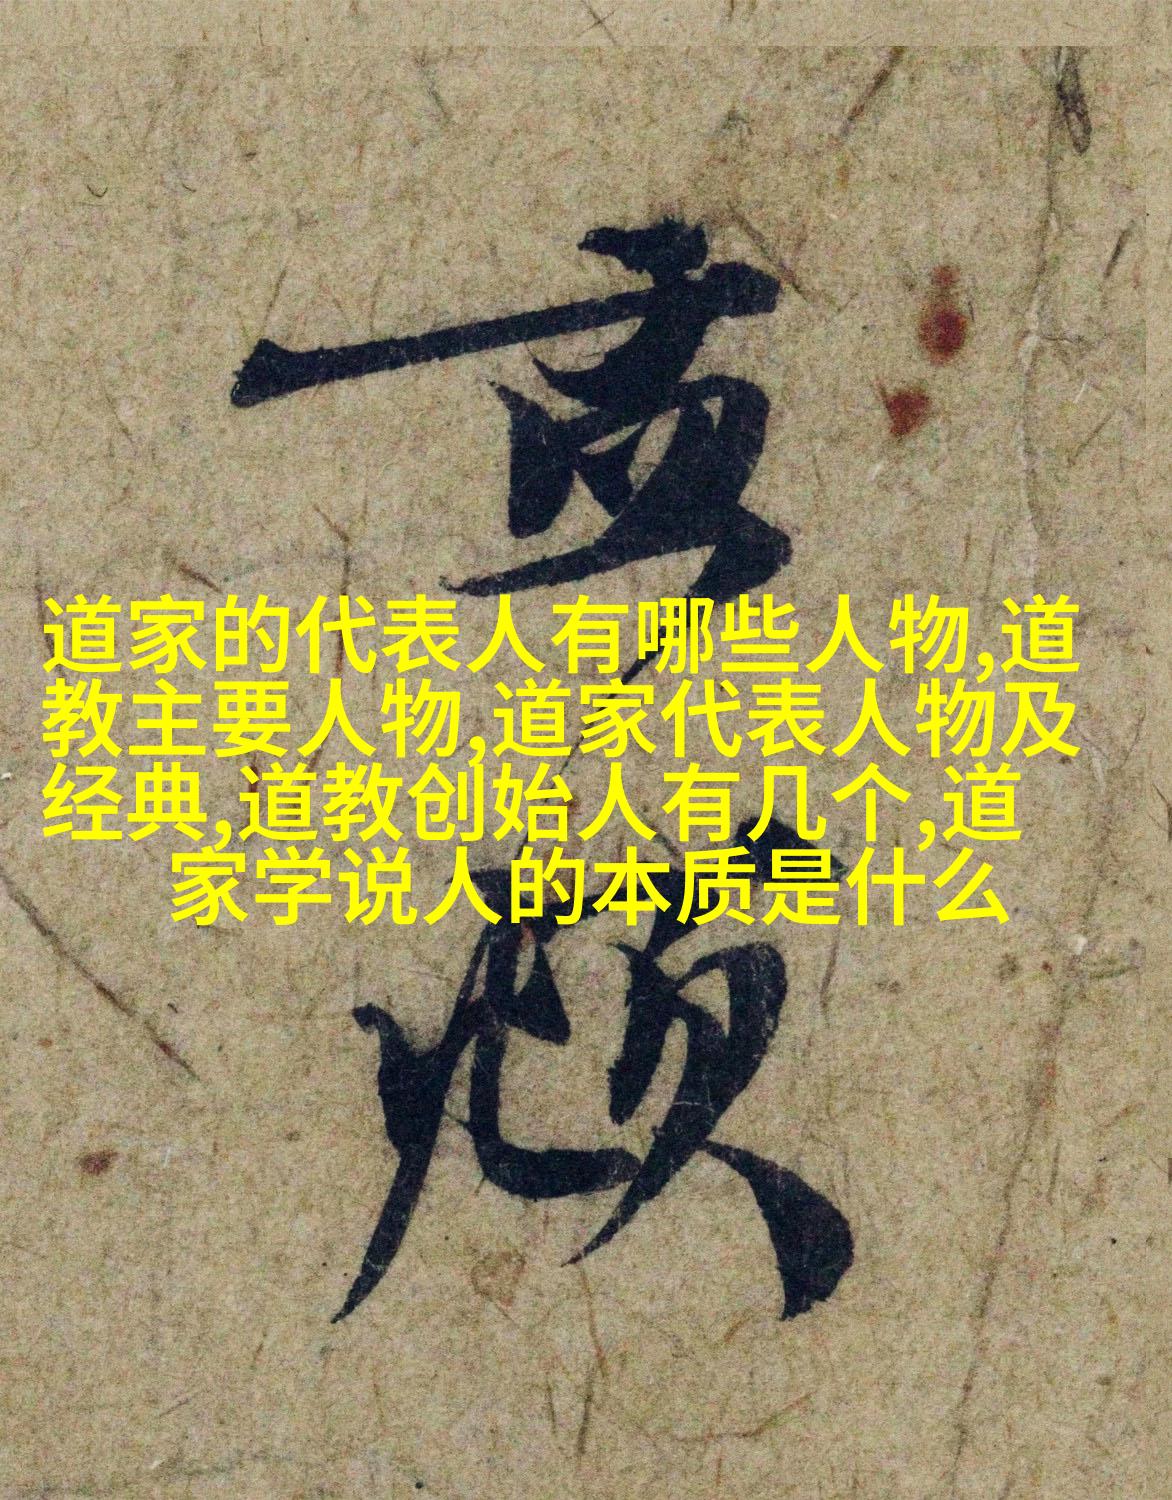 道家的代表人有哪些人物,道
教主要人物,道家代表人物及
经典,道教创始人有几个,道
家学说人的本质是什么